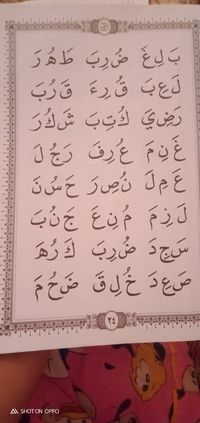 بَلِغَ ضُرِبَ طَهُرَ
لَعِبَ قُرِءَ قَرُبَ
رَضِيَ كُتِبَ شَكُرَ
غَنِمَ عُرِفَ رَجُلَ
عَمِلَ نُصِرَ حَسُنَ
لَزِمَ مُنِعَ جَنُبَ
سَجِدَ ضُرِبَ كَرُهَ
صَعِدَ خُلِقَ ضَخُمَ
٢٤
SHOT ON OPPO